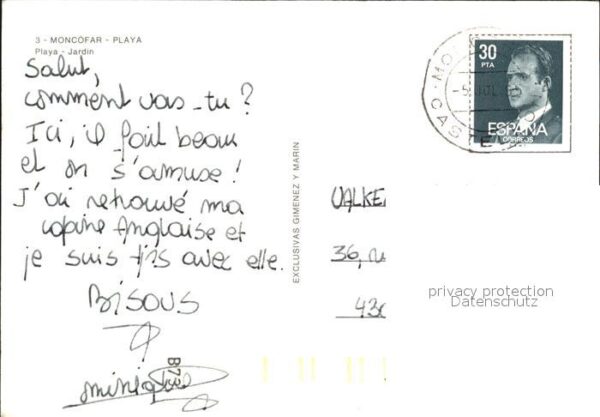 3 - MONCÓFAR - PLAYA
Playa - Jardin
Salut,
comment vas-tu ?
Ici, il fait beau
et on s'amuse !
J'ai retrouvé ma
copine Anglaise et
je suis tjrs avec elle.
BISOUS
B73
EXCLUSIVAS GIMENEZ Y MARIN
30
PTA
ESPAÑA
CORREOS
-5 JUL
CASTE
VALKE
36,
43
privacy protection
Datenschutz